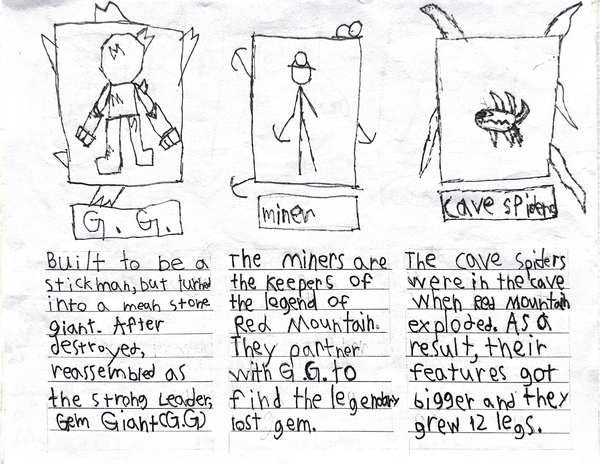 M
M
G. G.
miner
cave spiders
Built to be a
stickman, but turned
into a mean stone
giant. After
destroyed,
reassembled as
the strong Leader,
Gem Giant (G.G)
The miners are
the keepers of
the legend of
Red Mountain.
They partner
with G.G. to
find the legendary
lost gem.
The cave spiders
were in the cave
when Red Mountain
exploded. As a
result, their
features got
bigger and they
grew 12 legs.